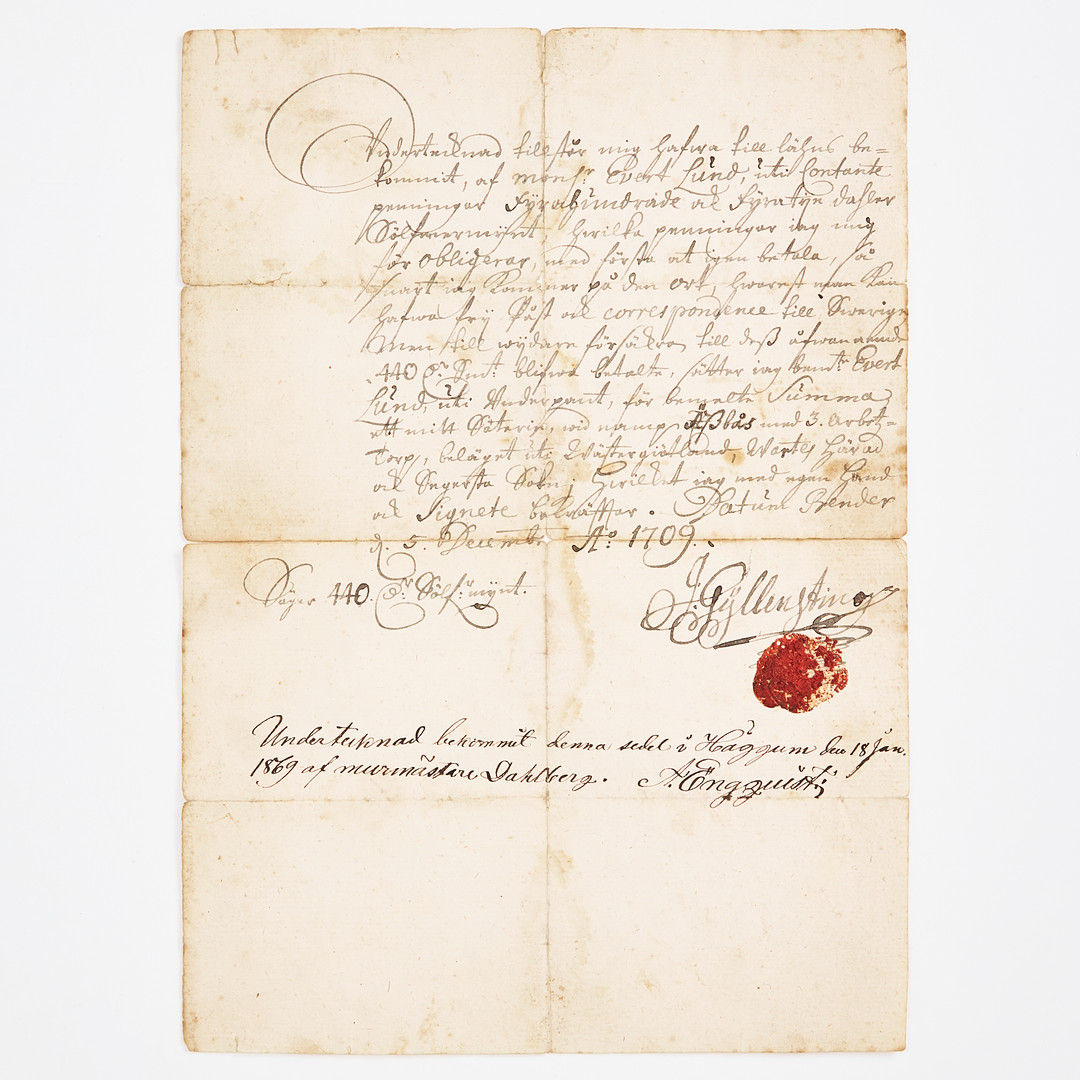 Undertecknad tillstår mig hafwa till låhns be=
kommit, af monsr. Evert Lund, uti Contante
penningar Fyrahundrade ock Fyratye dahler
Sölfwermynt, hwilka penningar iag mig
för obligerar, med första at igen betala, så
snart iag kommer på den ort, hwarest man kan
hafwa fry Påst ock correspondence till Swerige
Men till wydare försäkra, till deß åfwannämde
440 dr. Smt. blifwa betalte, sätter iag bemte Evert
Lund, uti Underpant, för bemelte Summa,
ett mitt Säterie, wid namp Äßbås med 3. Arbet=
Torp, beläget uti Wästergiötland, Wartes Härad
ock Segersta Sokn; Hwilket iag med egen Hand
ock Signete bekräffter. Datum Bender
d. 5. Decembr Ao. 1709.
Säger 440. dr. Sölfr. mynt.
J. Gyllensting
Undertecknad bekommit denna sedel i Häggum den 18 Jan.
1869 af murmästare Dahlberg. A. Engquist